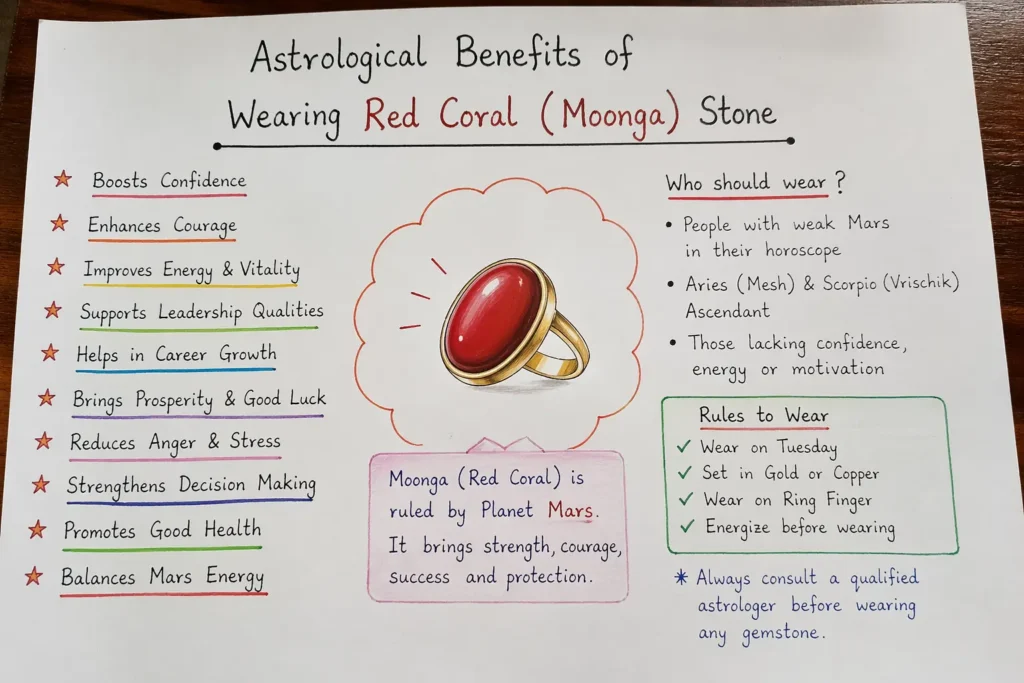 Astrological Benefits of
Wearing Red Coral (Moonga) Stone
Boosts Confidence
Enhances Courage
Improves Energy & Vitality
Supports Leadership Qualities
Helps in Career Growth
Brings Prosperity & Good Luck
Reduces Anger & Stress
Strengthens Decision Making
Promotes Good Health
Balances Mars Energy
Moonga (Red Coral) is
ruled by Planet Mars.
It brings strength, courage,
success and protection.
Who should wear?
• People with weak Mars
in their horoscope
• Aries (Mesh) & Scorpio (Vrischik)
Ascendant
• Those lacking confidence,
energy or motivation
Rules to Wear
✓ Wear on Tuesday
✓ Set in Gold or Copper
✓ Wear on Ring Finger
✓ Energize before wearing
* Always consult a qualified
astrologer before wearing
any gemstone.